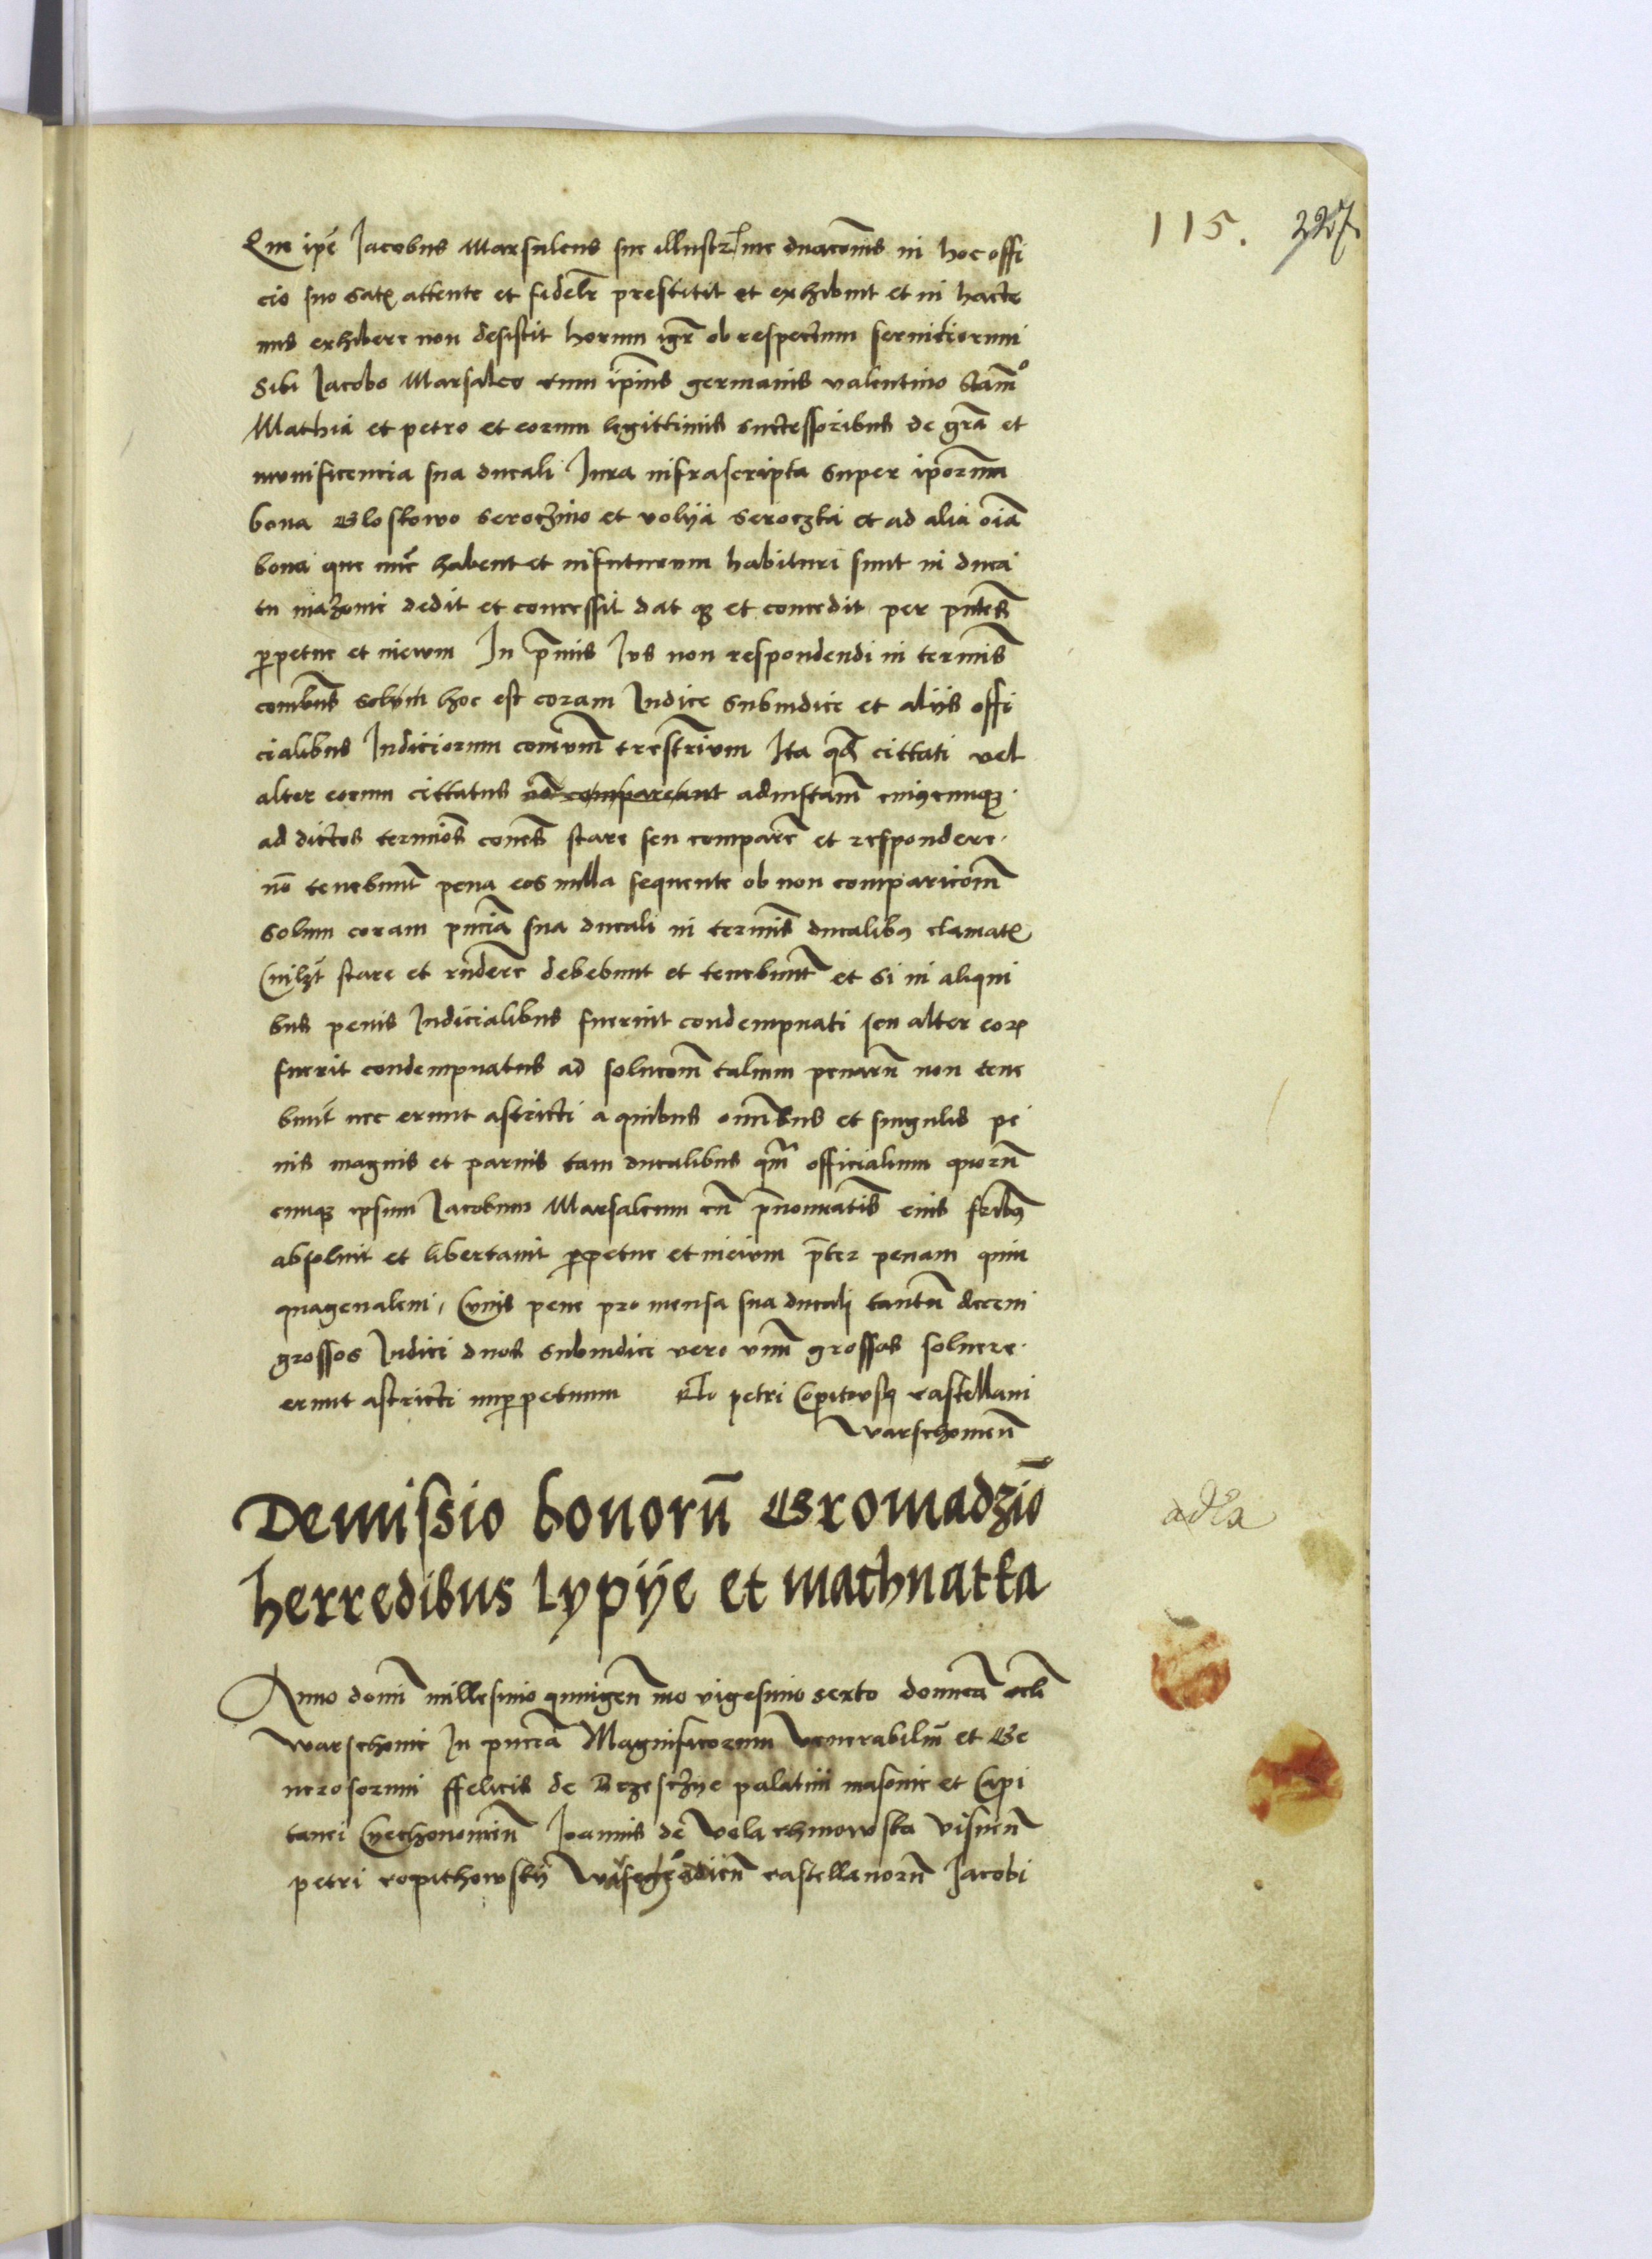 115. 227.
Que ipē Jacobus Marsaleus sue illustr̄me dnacōnis in hoc offi
cio suo satꝫ attente et fidelr̄ prestitit et exhibuit et in hacte
nus exhibere non desistit horum igr̄ ob respectum serviciorum
Sibi Jacobo Marsaleo cum ip̄ius germanis valentino Stam̄o
Mathia et petro et eorum legittimis successoribus de grā et
munificencia sua ducali Jura infrascripta super ipōrum
bona Gloskowo seroczino et volyą seroczka et ad alia oīa
bona que nūc habent et infuturum habituri sunt in duca
tu mazovie dedit et concessit dat qꝫ et concedit per pn̄tes
ꝑpetue et inevum In p̄mis Jvs non respondendi in termīs
com̄bus solum hoc est coram Judice Subiudice et alijs offi
cialibus Judiciorum comunīm trestrium Ita qđ cittati vel
alter eorum cittatus ad instan̄ cuiuscunqꝫ
ad dictos termios cones̄ stare seu comparē et respondere
nō tenebunt̄ pena eos nulla sequente ob non comparicōm̄
solum coram pn̄cia sua ducali in termīs ducalibꝰ clamatꝫ
stare et rn̄dere debebunt et tenebunt̄ et si in aliqui
bus penis Judicialibus fuerint condempnati seu alter eorꝫ
fuerit condempnatus ad solucōm̄ talium penarū non tene
bunt̄ nec erunt astricti a quibus om̄ibus et singulis pe
nis magnis et parvis tam ducalibus qm̄ officialium quorū
cunqꝫ ipsum Jacobum Marsaleum cū p̄nomīatis eius fr̄ibꝰ
absolvit et libertavit ꝑpetue et inevum p̄ter penam quin
quagenalem, Cuius pene pro mensa sua ducali tantū decem
grossos Judici duos subiudici vero vnū grossos solvere
erunt astricti imꝑpetuum Rlō petri Copitowsky castellani
warschovien̄
Demissio bonorū Gromadzīo
herredibus Lypÿe et machnatka
adla
Anno domī millesimo quingen̄ mo vigesimo sexto domnca
warschovie In pn̄cia Magnificorum Venerabiliū et Ge
nerosorum ffelicis de Brzesczye palatini masovie et Capi
tanei Cyechonovien̄ Joannis de Vola chinowska Visnen̄
petri copithowskÿ castellanorū Jacobi